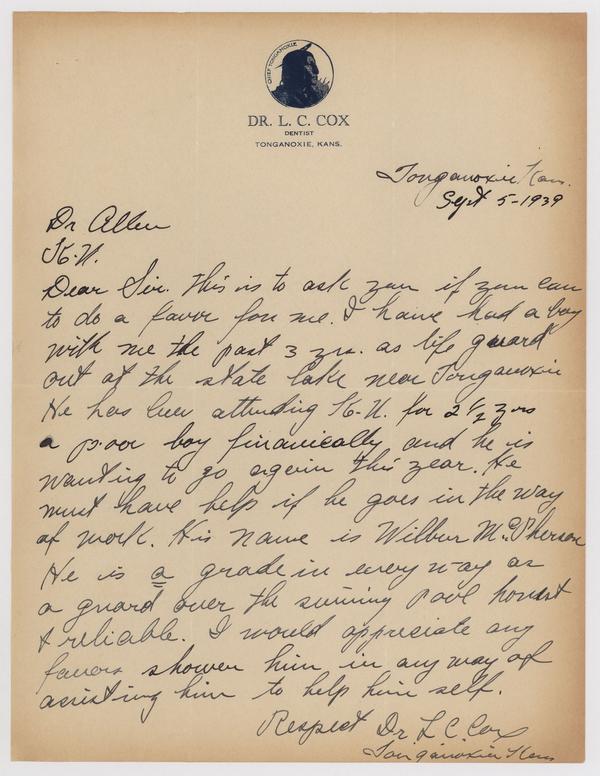 CHIEF TONGANOXIE
DR. L. C. COX
DENTIST
TONGANOXIE, KANS.
Tonganoxie, Kans.
Sept 5-1939
Dr Allen
K.U.
Dear Sir. this is to ask you if you can
to do a favor for me. I have had a boy
with me the past 3 yrs. as life guard
out at the state lake near Tonganoxie
He has been attending K.U. for 2 1/2 yrs
a poor boy financically and he is
wanting to go again this year. He
must have help if he goes in the way
of work. His name is Wilbur McPherson
He is a grade in every way as
a guard over the swiming pool honest
& reliable. I would appreciate any
favors shower him in any way of
assisting him to help him self.
Respect Dr L C. Cox
Tonganoxie Kans